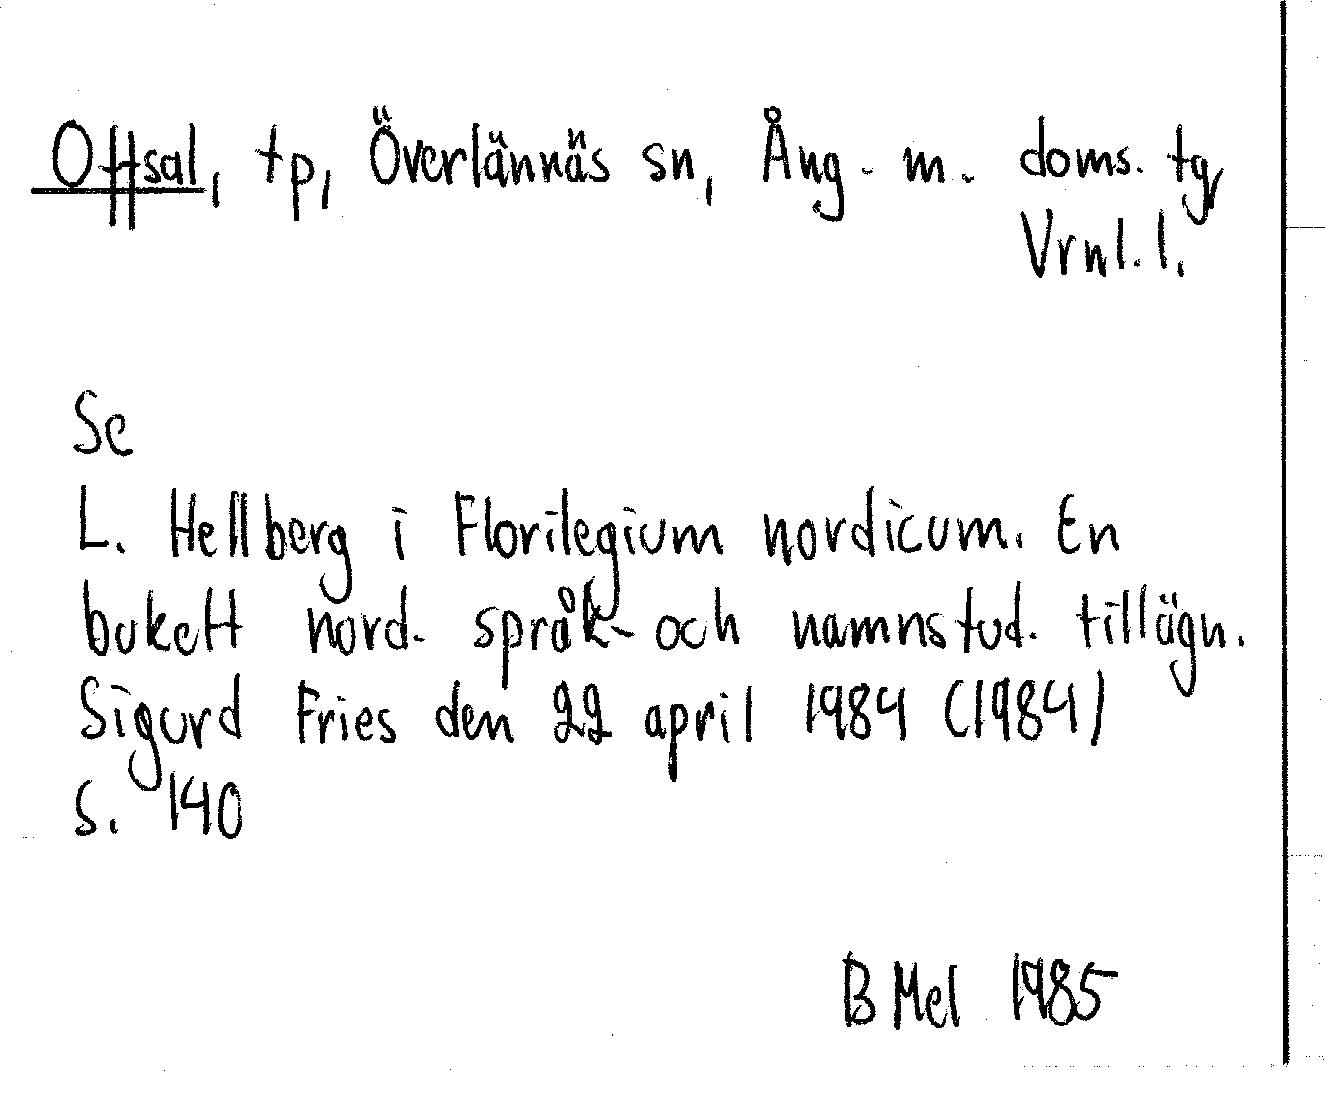 Offsal, tp, Överlännäs sn, Ång. m. doms. tg,
Vrnl. l.
Se
L. Hellberg i Florilegium nordicum. En
bukett nord. språk- och namnstud. tillägn.
Sigurd Fries den 22 april 1984 (1984)
s. 140
B Mel 1985